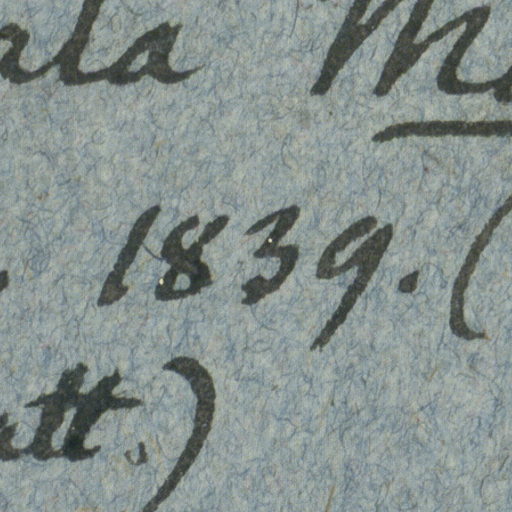 ala M
1839. (
att.)